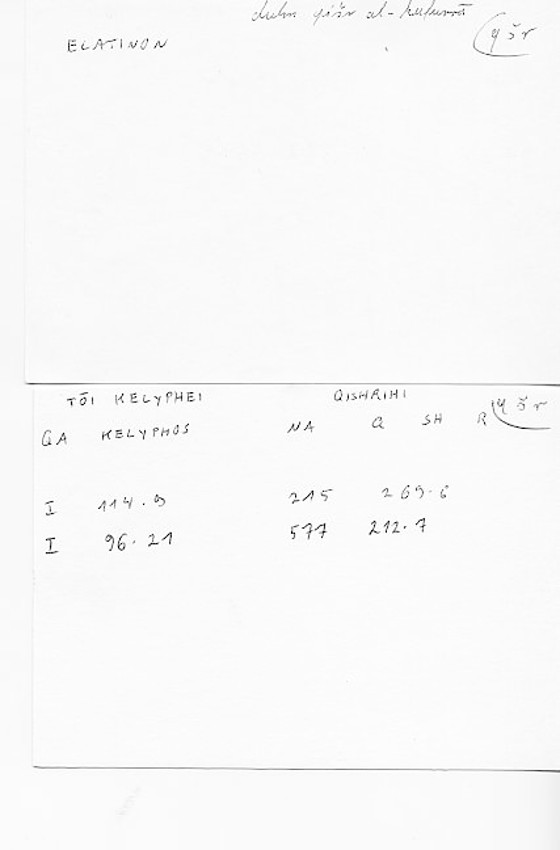 duhn qišr al-kufurrā
ELATINON q š r
TŌI KELYPHEI QISHRIHI q š r
QA KELYPHOS NA Q SH R
I 114.9 215 269.6
I 96.21 577 212.7